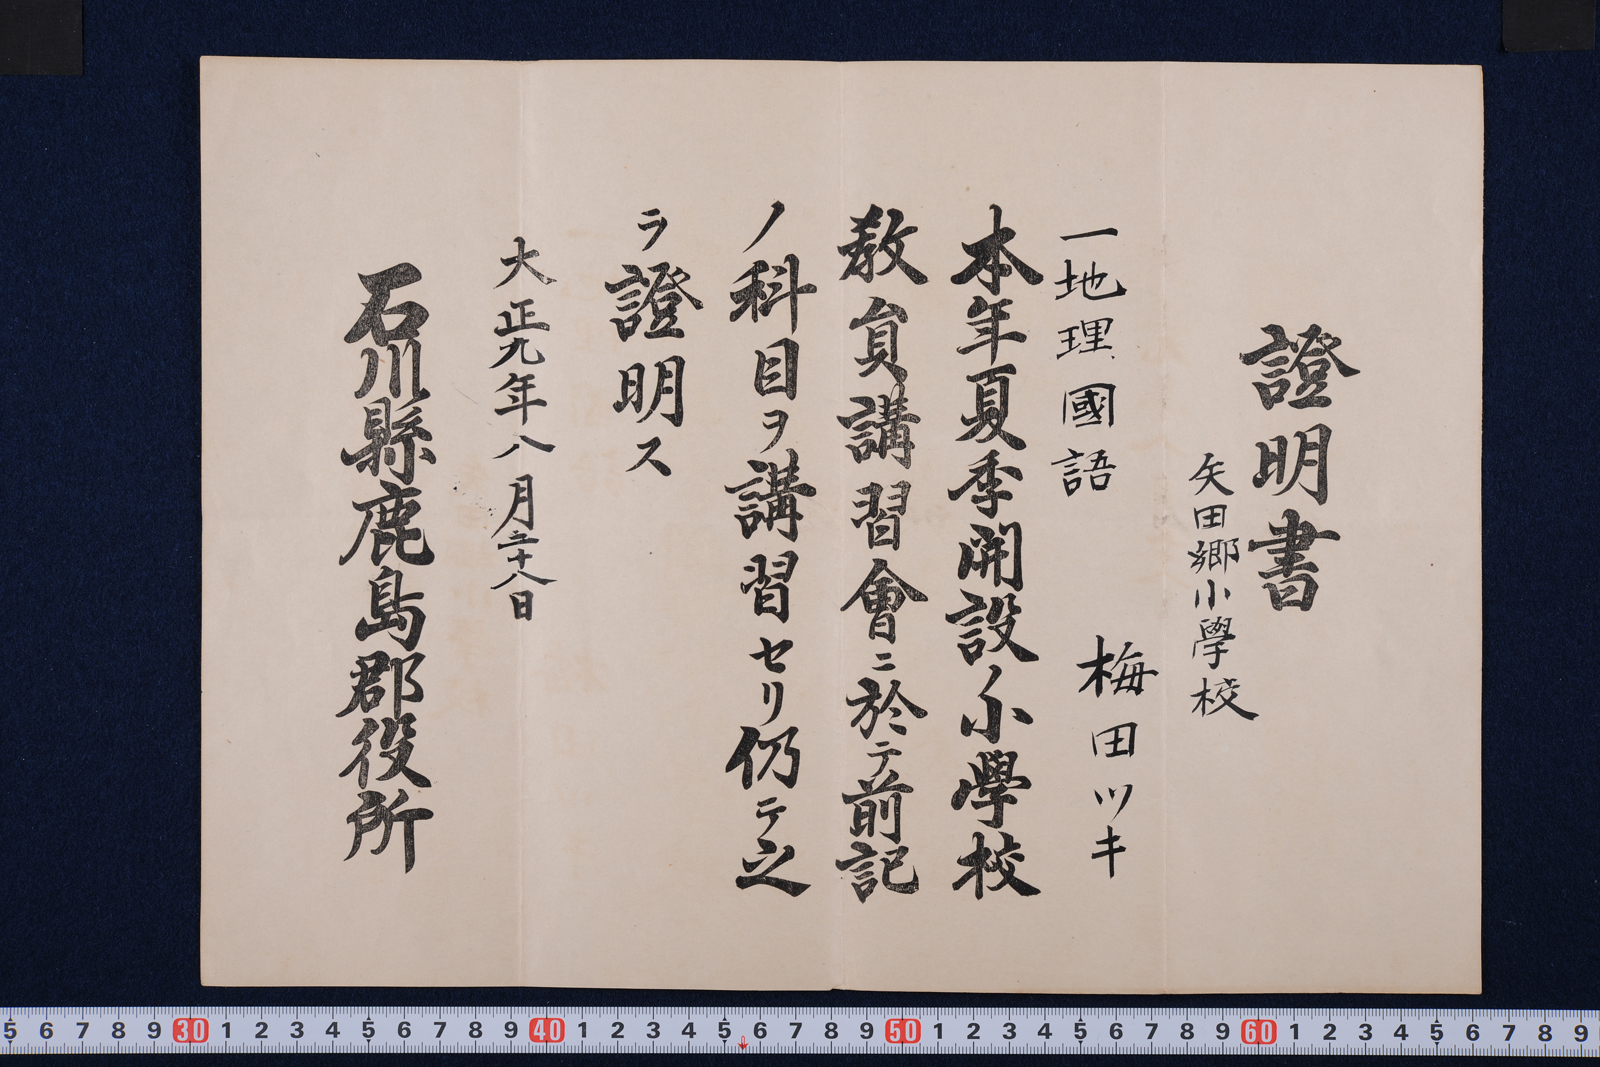 證明書
矢田郷小學校
梅田ツキ
一地理國語
本年夏季開設ノ小學校
教員講習會ニ於テ前記
ノ科目ヲ講習セリ仍テ之
ヲ證明ス
大正九年八月二十八日
石川縣鹿島郡役所
5 6 7 8 9 30 1 2 3 4 5 6 7 8 9 40 1 2 3 4 5 6 7 8 9 50 1 2 3 4 5 6 7 8 9 60 1 2 3 4 5 6 7 8 9